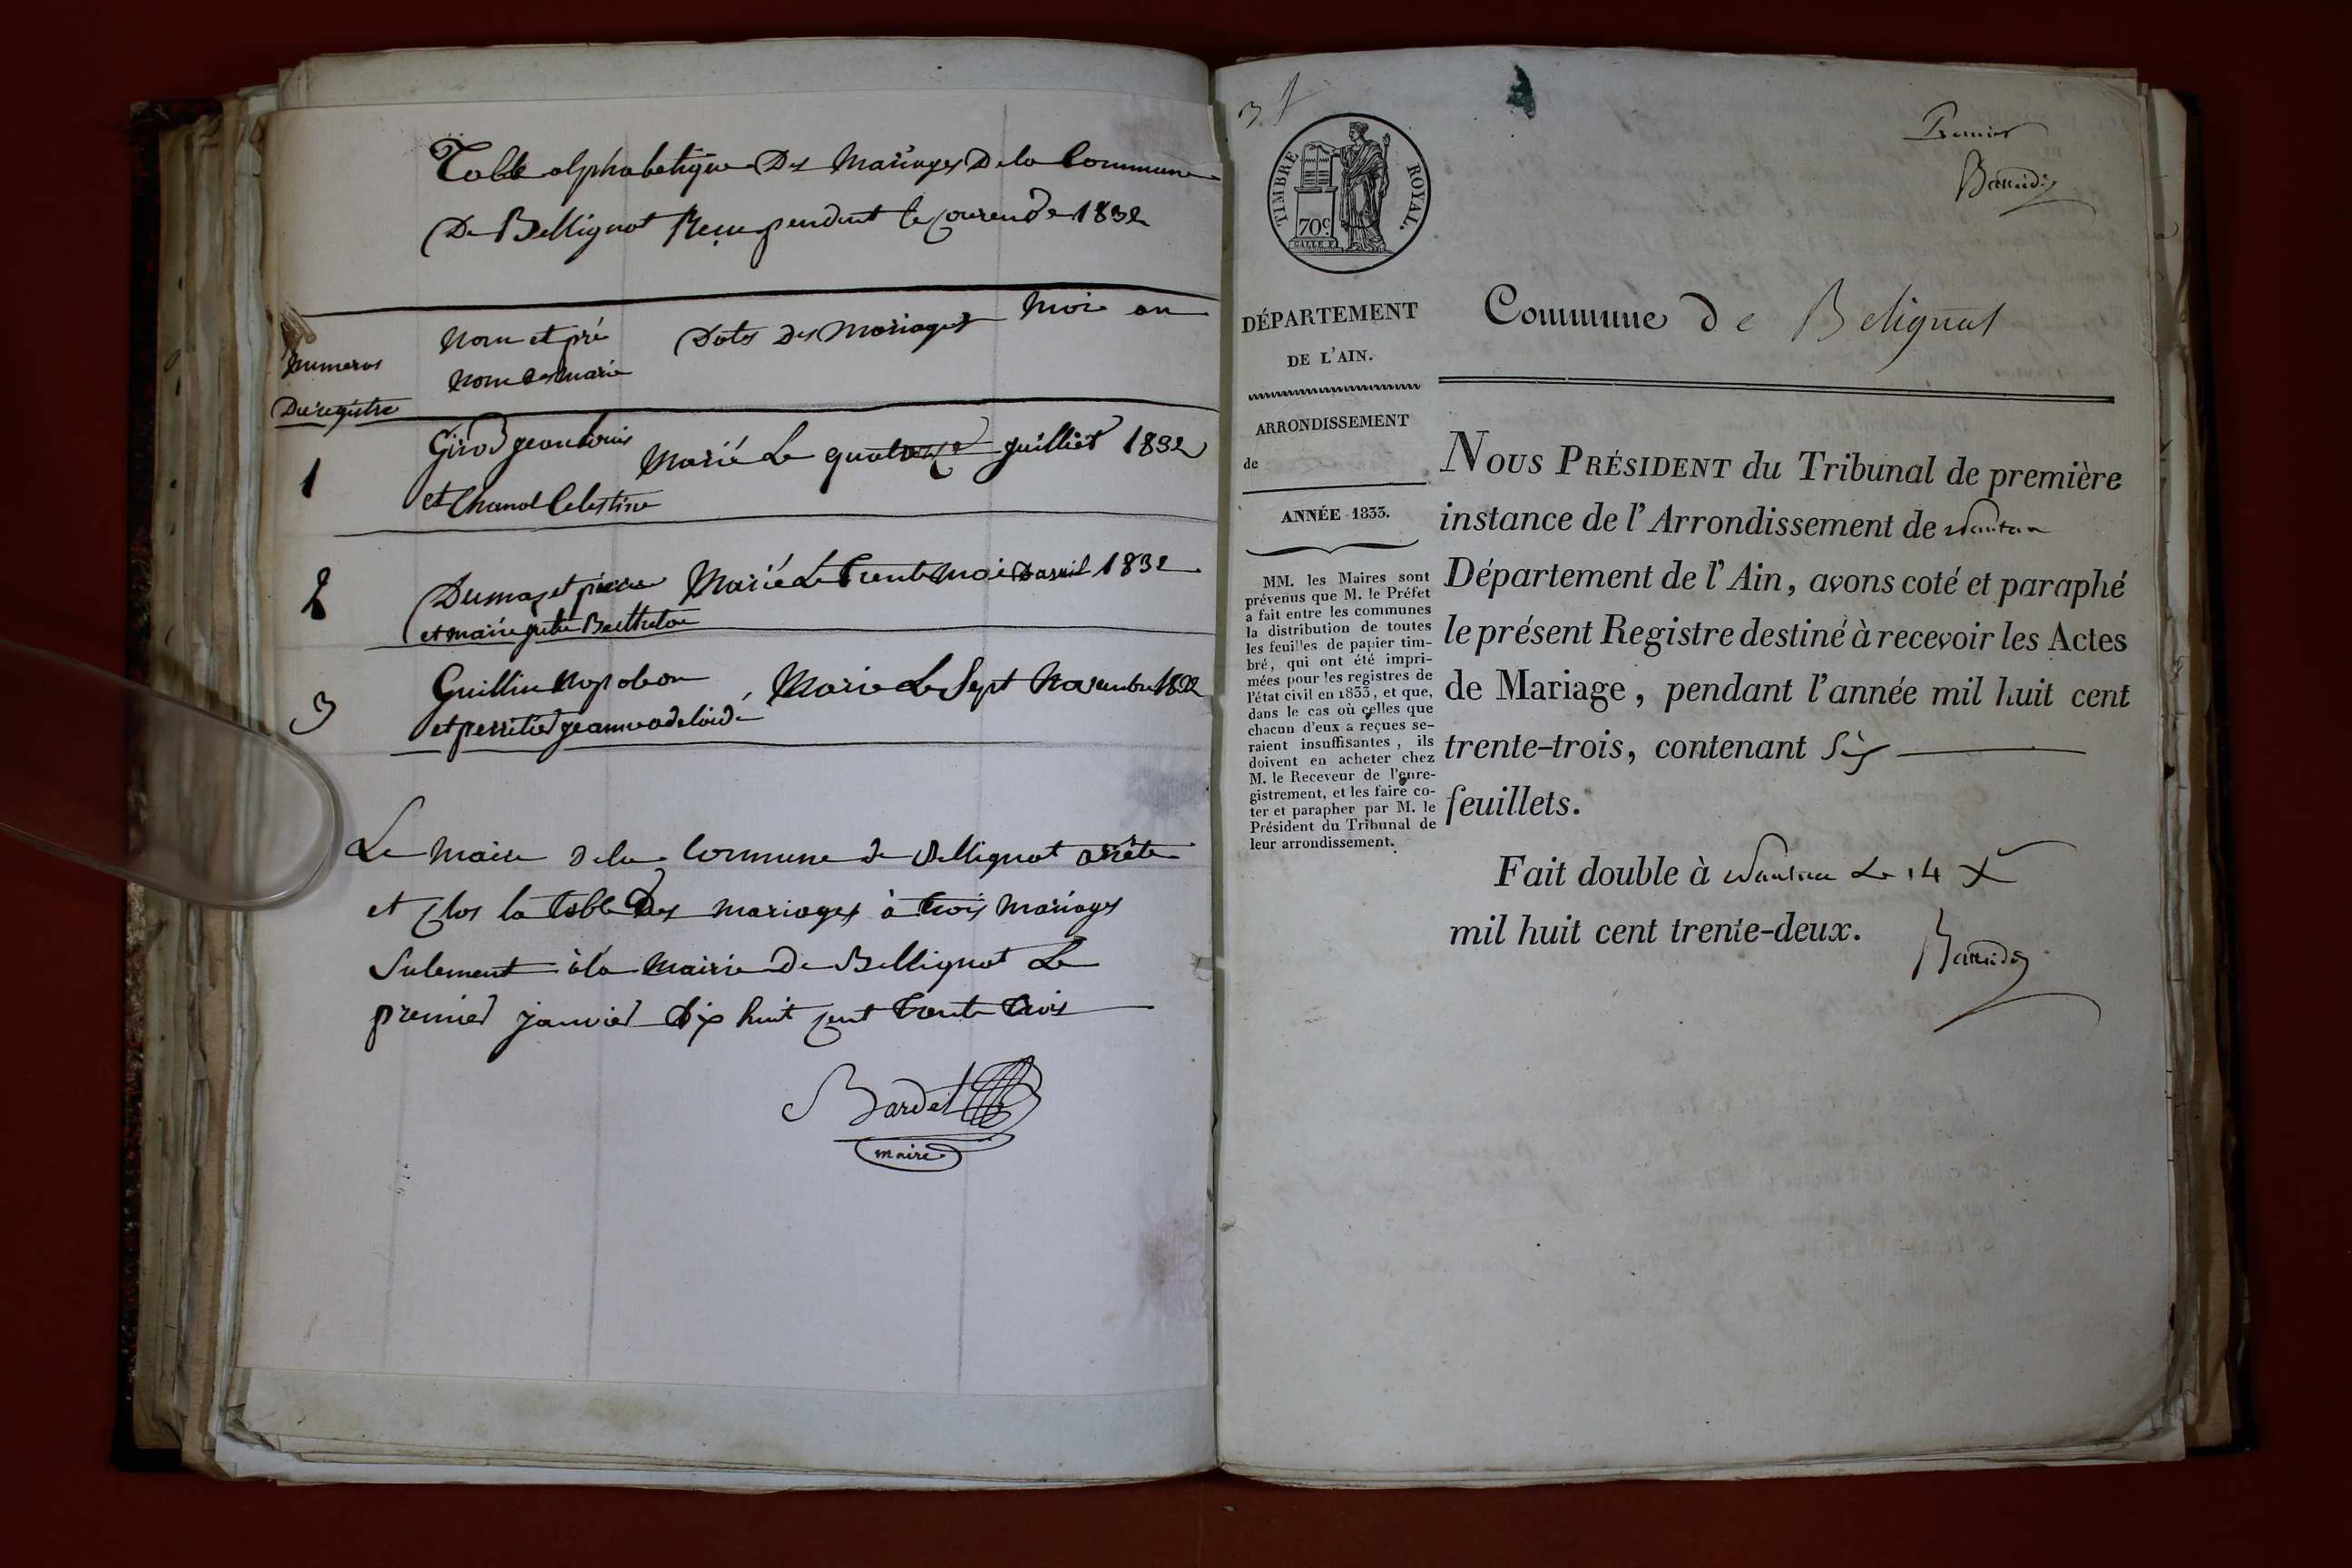 Table alphabetique Des Mariages De la Commune
De Bellignat Reçu pendent le courend 1832
Mois an
Nom et pré Dates Des Mariages
numeros nom des marié
Du registre
Girod jeanlouis Marié Le quatorze juilliet 1832
1
et Chanol Celestine
2 Dumaz et pierre Marié Le trente Mois Davril 1832
et marie
3 Guillin Napoleon Marie Le Sept Novembre 1832
et perrilied jeanne adelaide
Le Maire de la Commune de Bellignat arrête
et clos la table des mariages à trois mariages
Sulement à la Mairie De Bellignat Le
premied janvied dix huit cent trente trois
Bardet
maire
3
Premier
TIMBRE ROYAL.
70 c.
Commune de Belignat
DÉPARTEMENT
DE L'AIN.
ARRONDISSEMENT
de
ANNÉE 1833.
MM. les Maires sont
prévenus que M. le Préfet
a fait entre les communes
la distribution de toutes
les feuilles de papier tim-
bré, qui ont été impri-
mées pour les registres de
l'état civil en 1833, et que,
dans le cas où celles que
chacun d'eux a reçues se-
raient insuffisantes, ils
doivent en acheter chez
M. le Receveur de l'enre-
gistrement, et les faire co-
ter et parapher par M. le
Président du Tribunal de
leur arrondissement.
NOUS PRÉSIDENT du Tribunal de première
instance de l'Arrondissement de Nantua
Département de l'Ain, avons coté et paraphé
le présent Registre destiné à recevoir les Actes
de Mariage, pendant l'année mil huit cent
trente-trois, contenant Six
feuillets.
Fait double à Nantua Le 14 X
mil huit cent trente-deux.